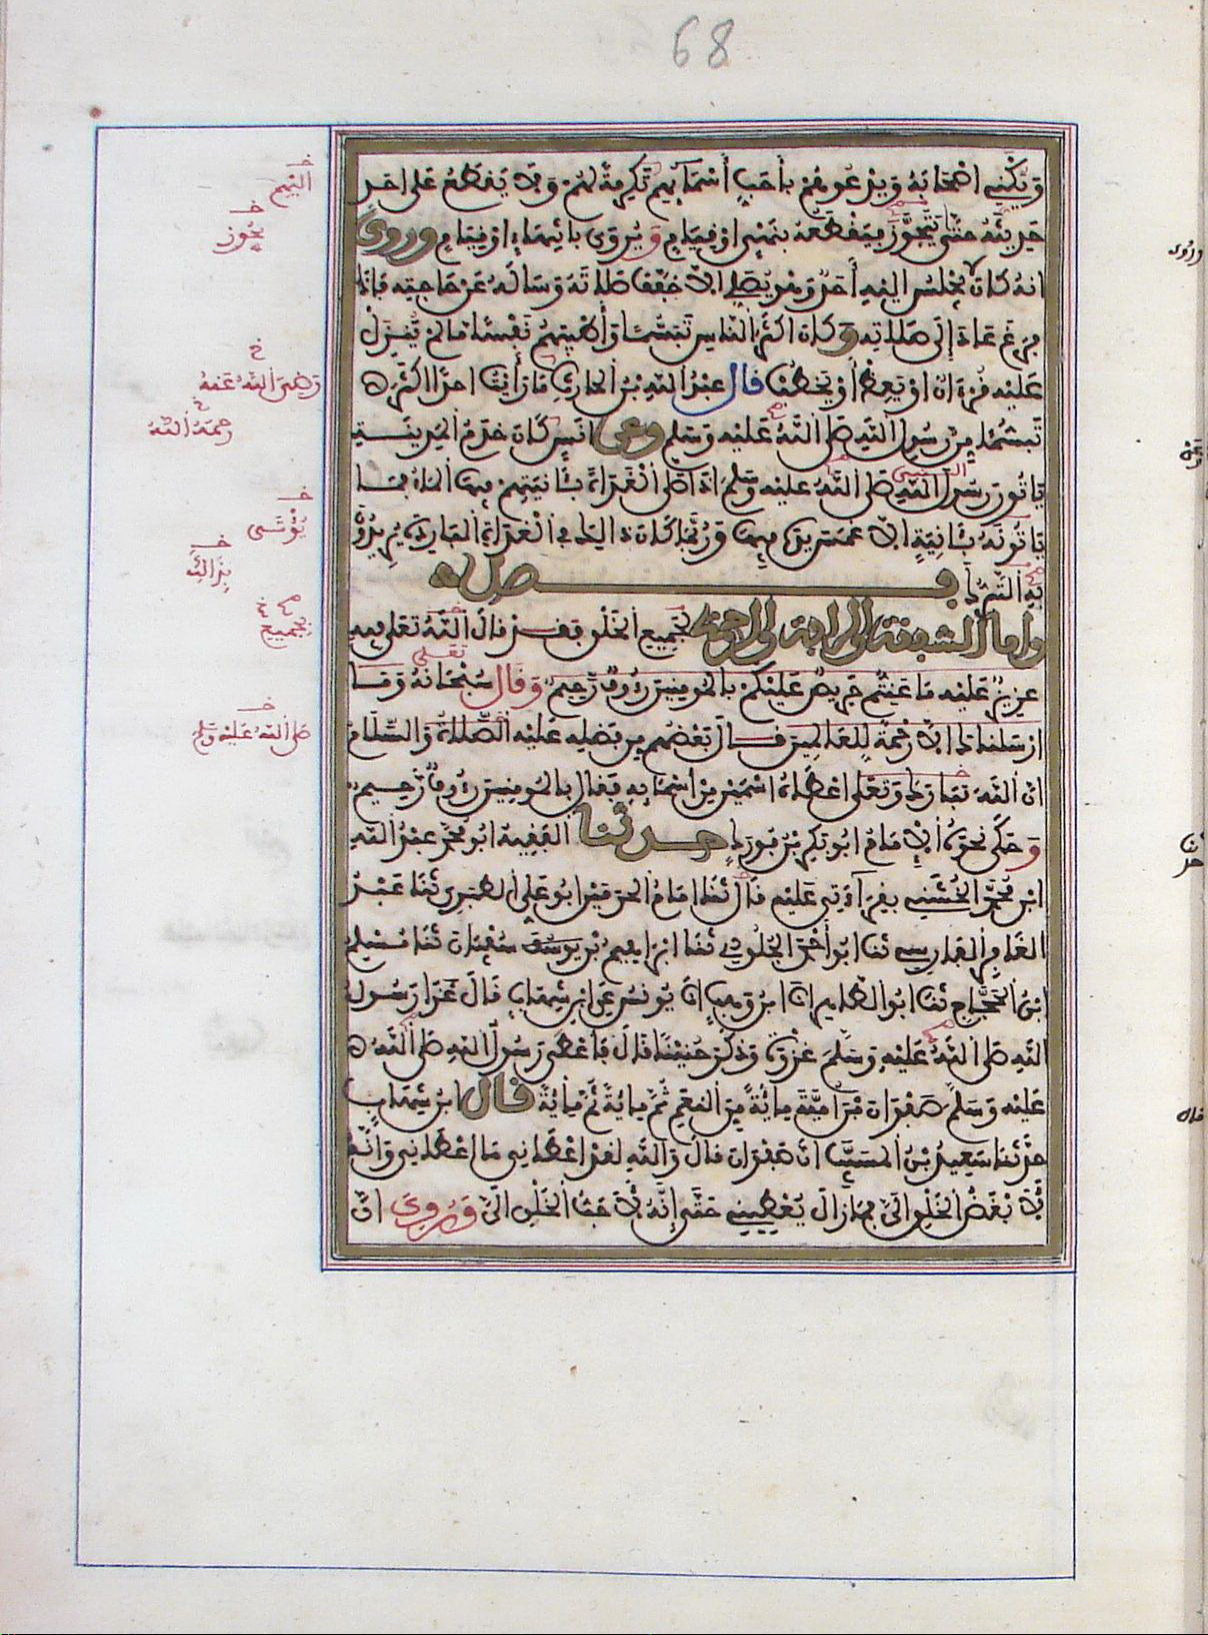 68
وَيُكَنِّي أَصْحَابَهُ وَيَدْعُوهُمْ بِأَحَبِّ أَسْمَائِهِمْ تَكْرِمَةً لَهُمْ وَلَا يَقْطَعُ عَلَى أَحَدٍ
حَدِيثَهُ حَتَّى يَتَجَوَّزَ فَيَقْطَعُهُ بِنَهْيٍ أَوْ قِيَامٍ وَيُرْوَى بِانْتِهَاءٍ أَوْ قِيَامٍ وروي
انه كان لا يجلس إليه أحد وهو يصلي إلا خفف صلاته وسأله عن حاجته فإذا
فرغ عاد إلى صلاته وكان أكثر الناس تبسما وأطيبهم نفسا ما لم ينزل
عليه قرءان أو يعظ أو يخطب قال عبد الله بن الحارث ما رأيت احدا اكثر
تبسما من رسول الله صلى الله عليه وسلم وعن انس كان خدم المدينة
ياتون رسول الله صلى الله عليه وسلم اذا صلى الغداة بئانيتهم فيها الماء فما
ياتونه بئانية الا غمس يده فيها وربما كان ذلك في الغداة الباردة يريدون
به التبرك فصل
وأما الشفقة والرافة والرحمة لجميع الخلق فقد قال الله تعلى فيه
عزيز عليه ما عنتم حريص عليكم بالمومنين رءوف رحيم وقال سبحانه وما
ارسلناك الا رحمة للعالمين قال بعضهم من فضله عليه الصلاة والسلام
ان الله تبارك وتعلى اعطاه اسمين من اسمائه فقال بالمومنين رءوف رحيم
وحكى نحوه الامام ابو بكر بن فورك حدثنا الفقيه ابو محمد عبد الله
ابن محمد الخشني بقراءتي عليه قال ثنا امام الحرمين ابو علي الطبري ثنا عبد
الغافر الفارسي ثنا ابو أحمد الجلودي ثنا ابراهيم بن سفيان ثنا مسلم
ابن الحجاج ثنا ابو الطاهر انا ابن وهب انا يونس عن ابن شهاب قال غزا رسول
الله صلى الله عليه وسلم غزوة وذكر حنينا قال فاعطى رسول الله صلى الله
عليه وسلم صفوان بن امية مائة من النعم ثم مائة ثم مائة قال ابن شهاب
حدثنا سعيد بن المسيب ان صفوان قال والله لقد اعطاني ما اعطاني وانه
لأبغض الخلق الي فما زال يعطيني حتى إنه لأحب الخلق الي وروي ان
اليهم
يجوز
رضي الله عنه
رحمه الله
النبي
يؤتى
بذلك
بجميع
تعلى
صلى الله عليه وسلم